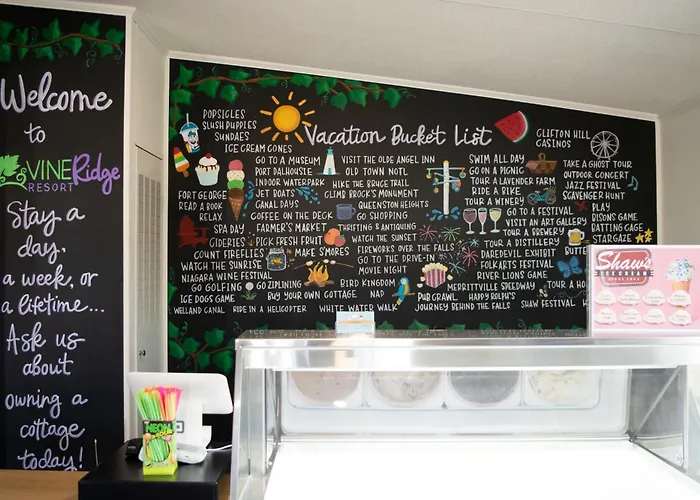 Welcome
to
VINE Ridge
RESORT
Stay a
day,
a week, or
a lifetime...
Ask us
about
owning a
cottage
today!
Vacation Bucket List
POPSICLES
SLUSH PUPPIES
SUNDAES
ICE CREAM CONES
GO TO A MUSEUM
PORT DALHOUSIE
INDOOR WATERPARK
JET BOATS
CANAL DAYS
COFFEE ON THE DECK
FARMER'S MARKET
PICK FRESH FRUIT
VISIT THE OLDE ANGEL INN
OLD TOWN NOTL
HIKE THE BRUCE TRAIL
CLIMB BROCK'S MONUMENT
QUEENSTON HEIGHTS
GO SHOPPING
THRIFTING & ANTIQUING
WATCH THE SUNSET
FIREWORKS OVER THE FALLS
GO TO THE DRIVE-IN
MOVIE NIGHT
FORT GEORGE
READ A BOOK
RELAX
SPA DAY
CIDERIES
COUNT FIREFLIES
WATCH THE SUNRISE
NIAGARA WINE FESTIVAL
ICE DOGS GAME
GO GOLFING
GO ZIPLINING
MAKE S'MORES
BUY YOUR OWN COTTAGE
BIRD KINGDOM
NAP
PUB CRAWL
WELLAND CANAL
RIDE IN A HELICOPTER
WHITE WATER WALK
JOURNEY BEHIND THE FALLS
SWIM ALL DAY
GO ON A PICNIC
TOUR A LAVENDER FARM
RIDE A BIKE
TOUR A WINERY
GO TO A FESTIVAL
VISIT AN ART GALLERY
TOUR A BREWERY
TOUR A DISTILLERY
DAREDEVIL EXHIBIT
FOLKARTS FESTIVAL
RIVER LIONS GAME
MERRITTVILLE SPEEDWAY
HAPPY ROLPH'S
SHAW FESTIVAL
TOUR A
CLIFTON HILL
CASINOS
TAKE A GHOST TOUR
OUTDOOR CONCERT
JAZZ FESTIVAL
SCAVENGER HUNT
PLAY
BISONS GAME
BATTING CAGE
STARGAZE
Shaw's
ICE CREAM
NEON